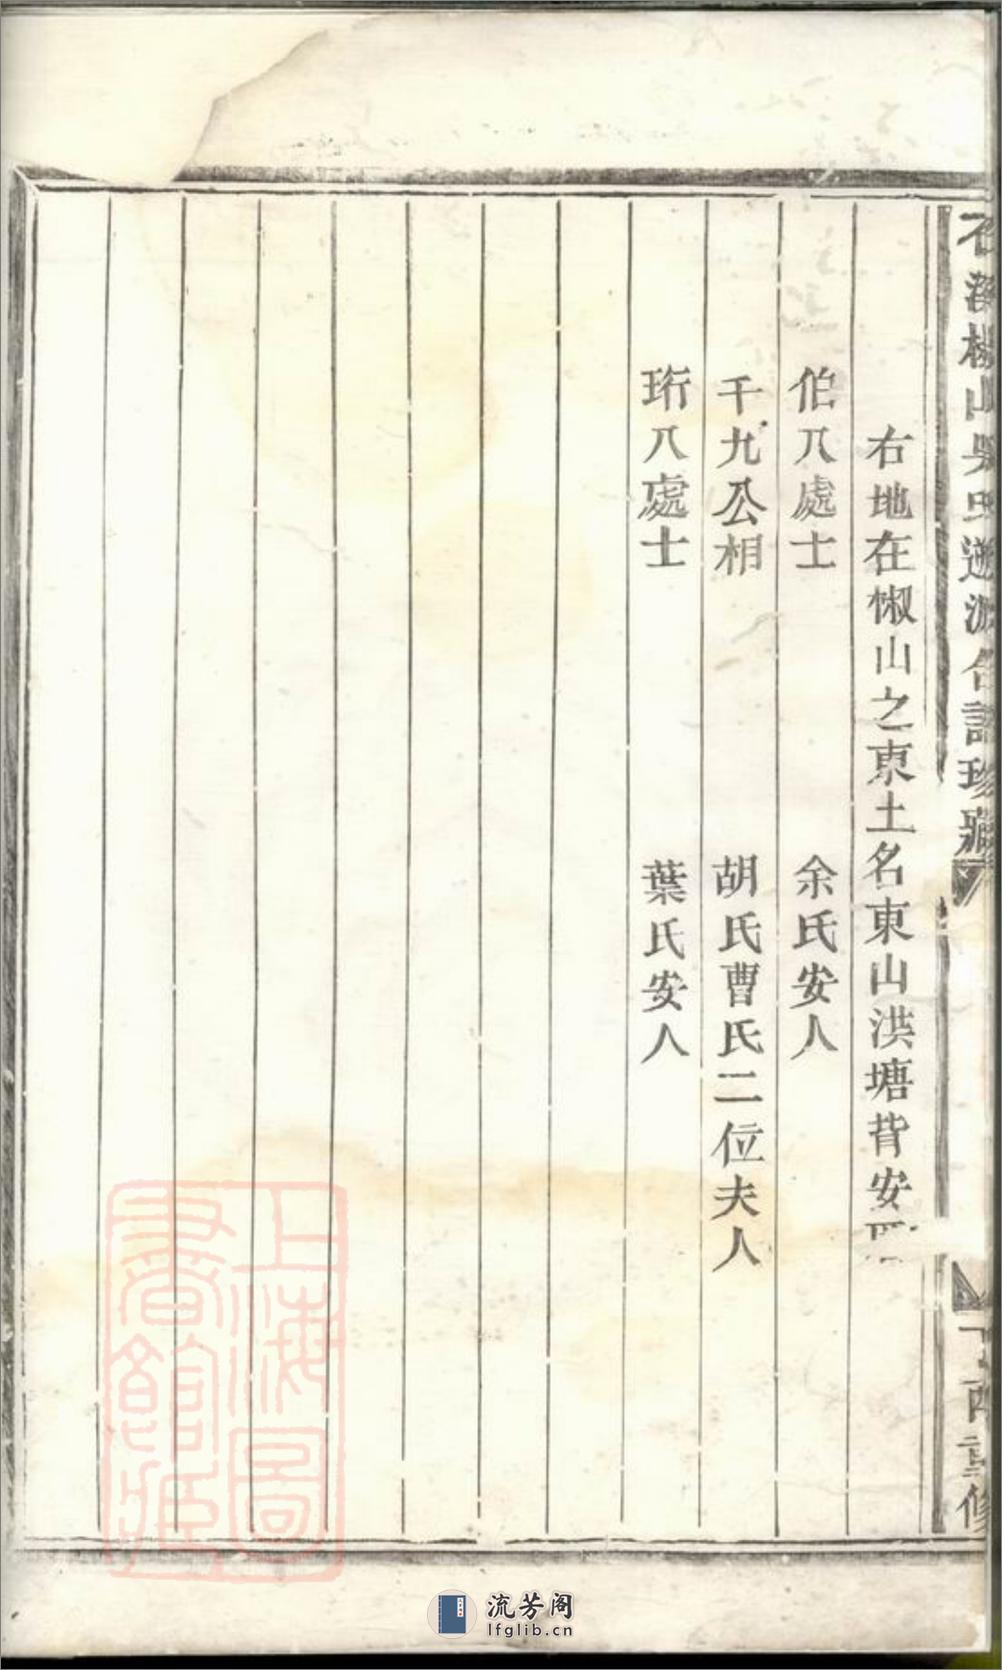 右地在椒山之東土名東山洪塘背安
伯八處士　余氏安人
千九公相　胡氏曹氏二位夫人
珩八處士　葉氏安人
山吳氏遡源合譜珍藏
丁酉重修
上海圖書館藏
流芳阁
lfglib.cn